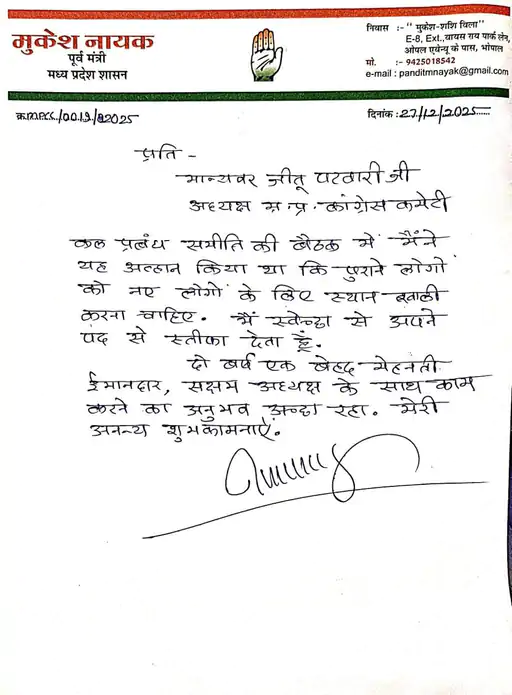 मुकेश नायक
पूर्व मंत्री
मध्य प्रदेश शासन
निवास :- "मुकेश-शशि विला"
E-8, Ext., वायस राय पार्क लेन,
ओपल एवेन्यू के पास, भोपाल
मो. :- 9425018542
e-mail : panditmnayak@gmail.com
दिनांक :27/12/2025
प्रति -
मान्यवर जीतू पटवारी जी
अध्यक्ष म.प्र. कांग्रेस कमेटी
कल प्रबंध समीति की बैठक में मैंने
यह आव्हान किया था कि पुराने लोगों
को नए लोगों के लिए स्थान खाली
करना चाहिए. मैं स्वेच्छा से अपने
पद से स्तीफा देता हूँ.
दो बर्ष एक बेहद मेहनती
ईमानदार, सक्षम अध्यक्ष के साथ काम
करने का अनुभव अच्छा रहा. मेरी
अनन्य शुभकामनाऐं.